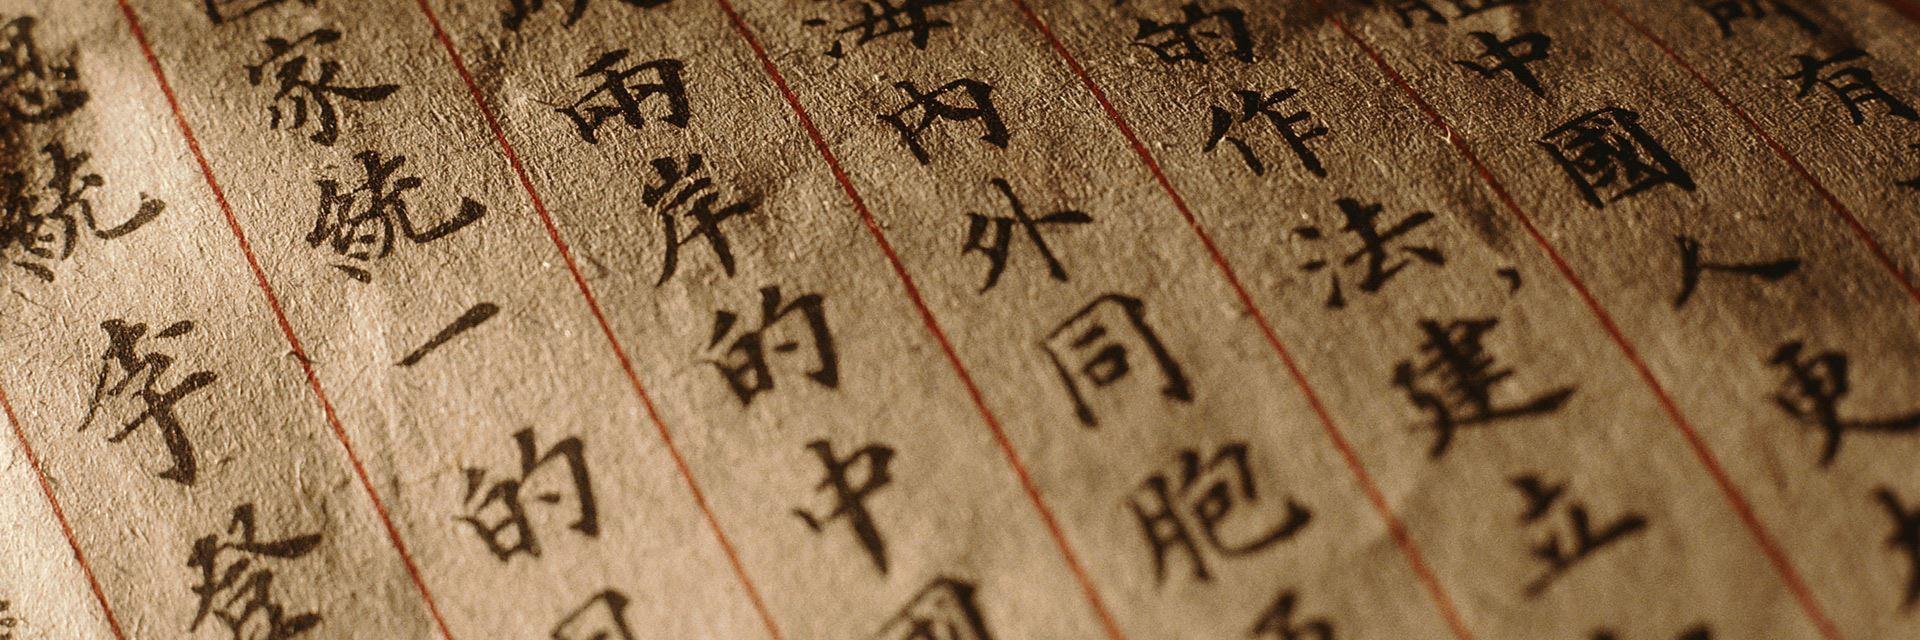 所有
體中國人更
的作法、建立
海內外同胞
兩岸的中國
家統一的
總統李登